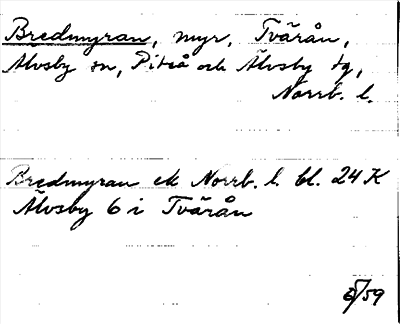 Bredmyran, myr, Tvärån,
Älvsby sn, Piteå och Älvsby tg,
Norrb. l.
Bredmyran ek Norrb. l. bl. 24 K
Älvsby 6 i Tvärån
/59